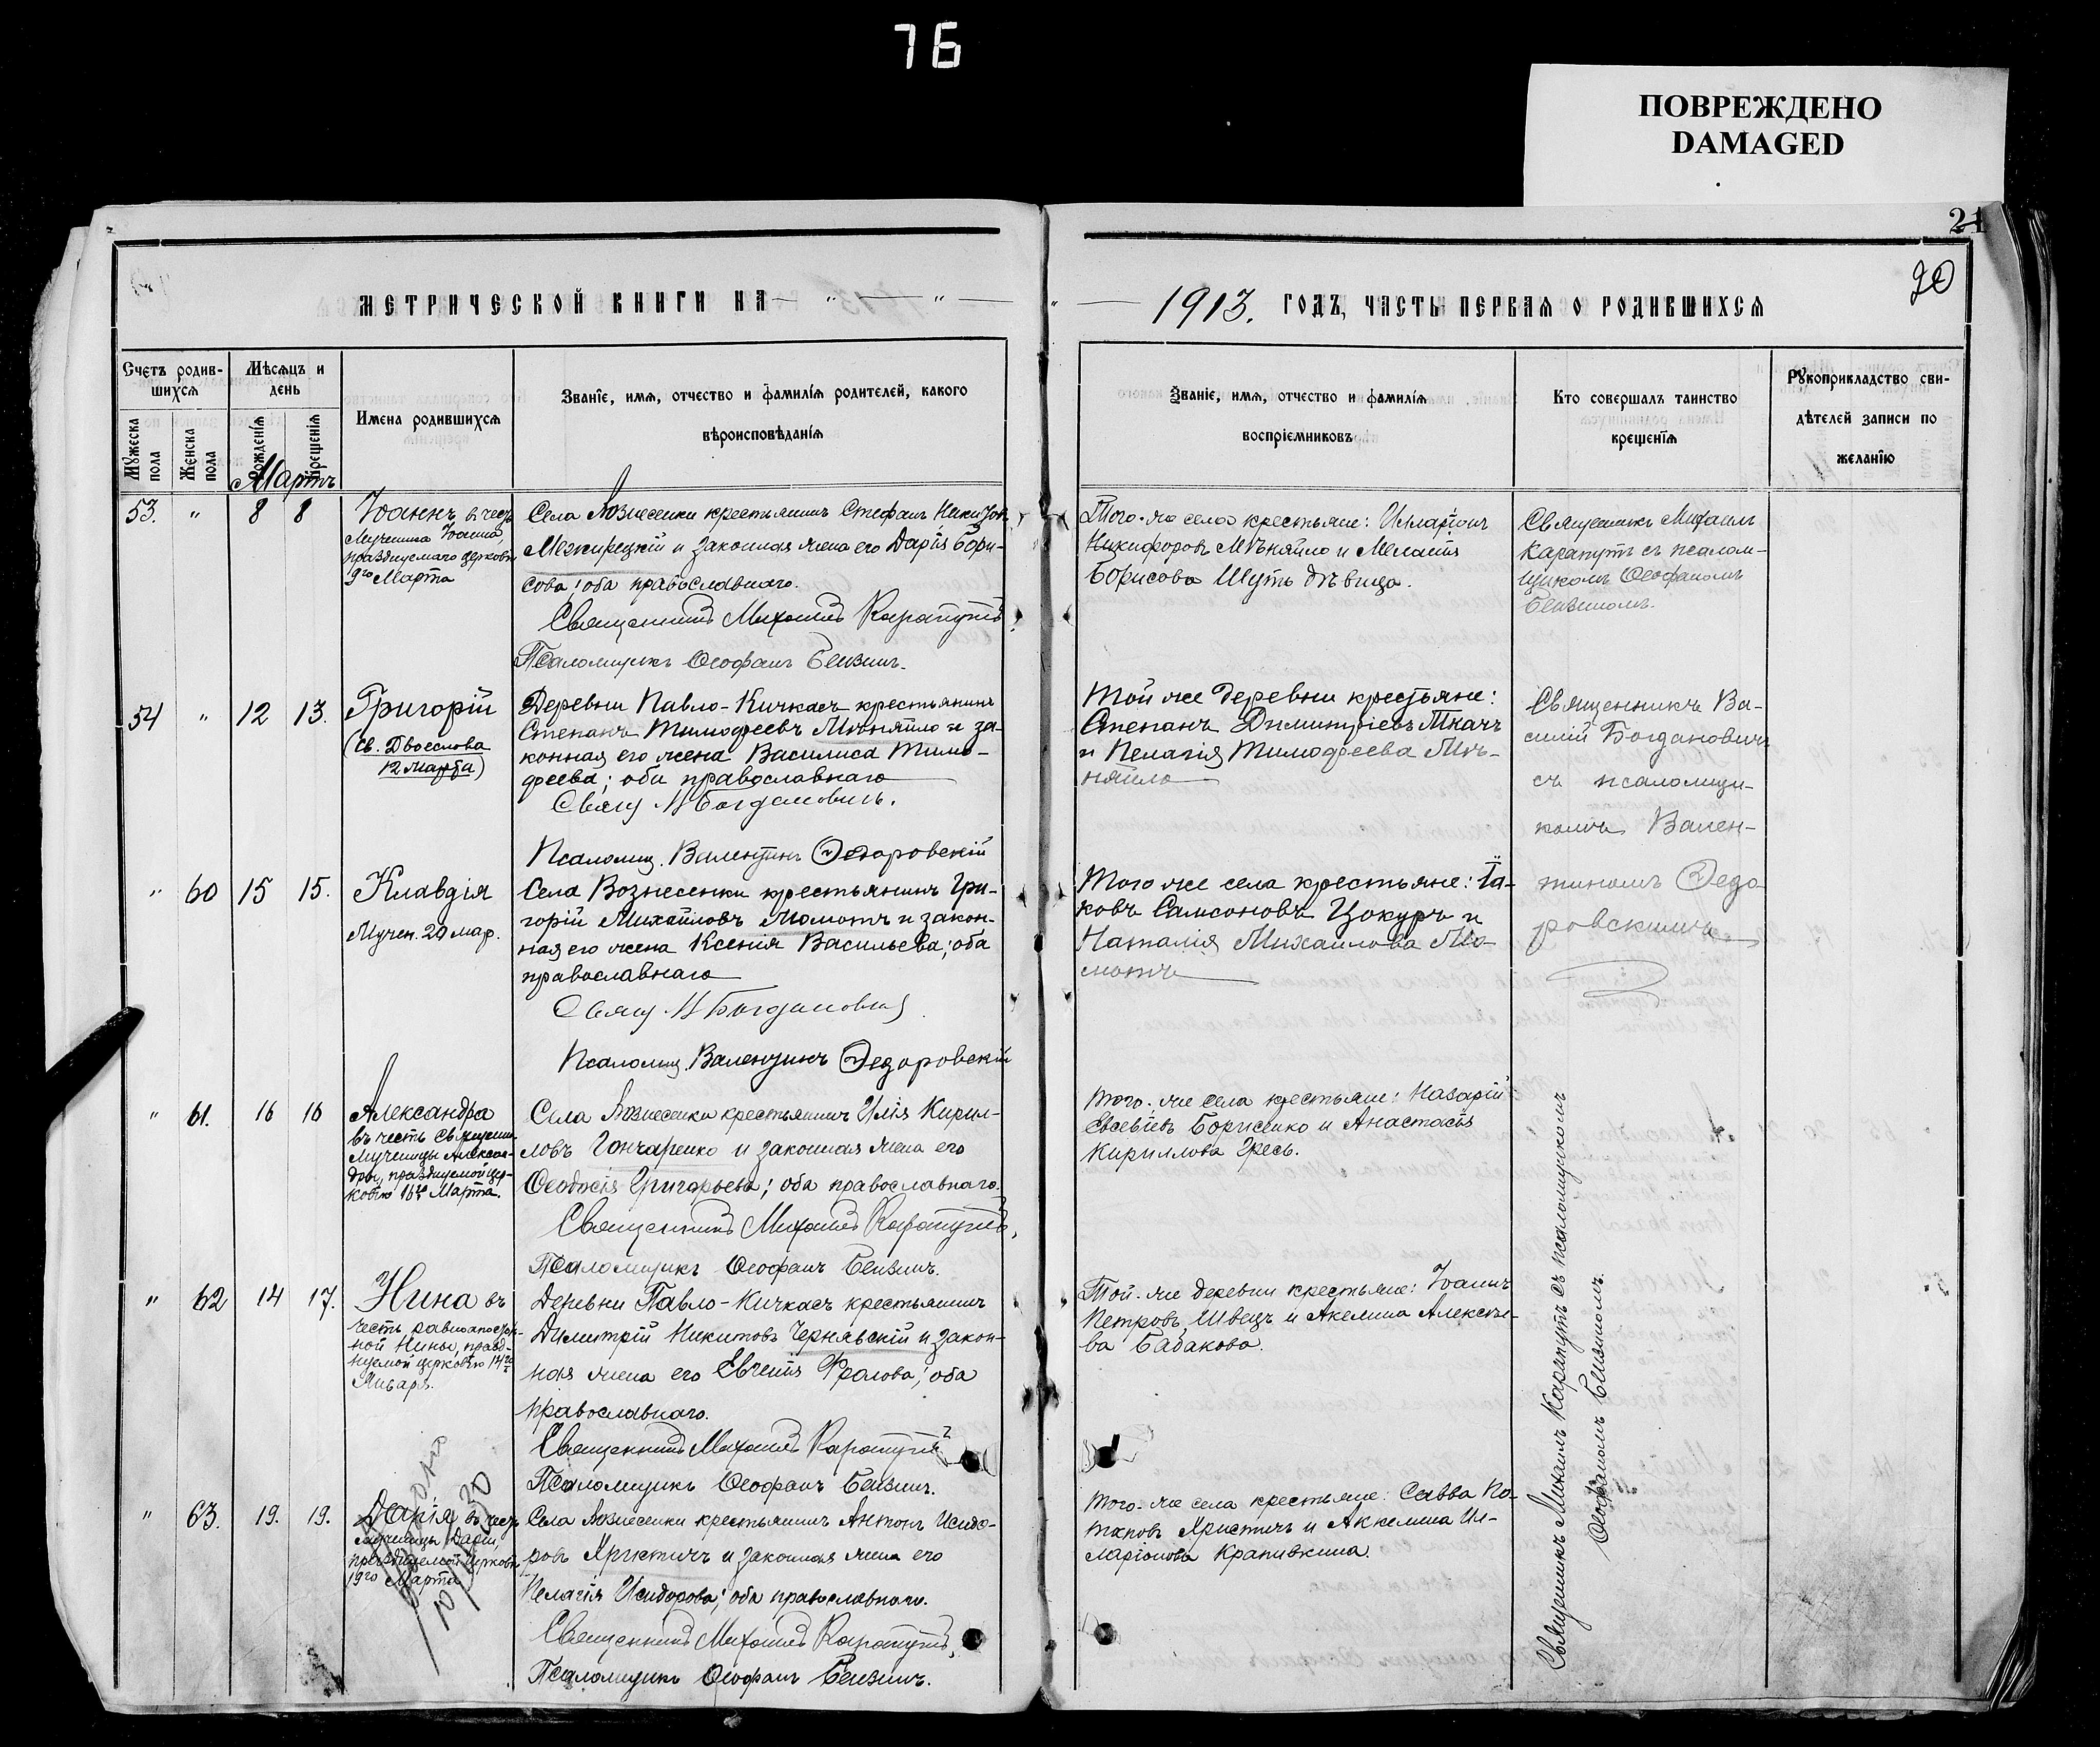 76
ПОВРЕЖДЕНО
DAMAGED
21
20
МЕТРИЧЕСКОЙ КНИГИ НА
1913. ГОДЪ, ЧАСТЬ ПЕРВАЯ О РОДИВШИХСЯ
Счетъ родив-
шихся
Мѣсяцъ и
день
Мужеска
пола
Женска
пола
Рожденія
Крещенія
Имена родившихся
Званіе, имя, отчество и фамилія родителей, какого
вѣроисповѣданія
Званіе, имя, отчество и фамилія
воспріемниковъ
Кто совершалъ таинство
крещенія
Рукоприкладство сви-
дѣтелей записи по
желанію
Мартъ
53. " 8 8
Іоаннъ въ честь
Мученика Іоанна,
празднуемаго церковью
9го Марта
Села Вознесенки крестьянинъ Стефанъ
Межирецкій и законная жена его Дарія Бори-
сова; оба православнаго.
Священникъ Михаилъ Карапутъ
Псаломщикъ Ѳеофанъ
Того-же села крестьяне: Илларіонъ
Никифоровъ Мѣняйло и Меланія
Борисова Шуть дѣвица.
Священникъ Михаилъ
Карапутъ съ псалом-
щикомъ Ѳеофаномъ
54 " 12 13.
Григорій
(св. Двоеслова
12 марта)
Деревни Павло-Кичкасъ крестьянинъ
Степанъ Тимофеевъ Мѣняйло и за-
конная его жена Василиса Тимо-
феева; оба православнаго
Свящ. В Богдановичъ.
Псаломщ. Валентинъ Ѳедоровскій
Той же деревни крестьяне:
Степанъ Димитріевъ Ткачъ
и Пелагія Тимофеева Мѣ-
няйло
Священникъ Ва-
силій Богдановичъ
съ псаломщи-
комъ Вален-
тиномъ Ѳедо-
ровскимъ
" 60 15 15.
Клавдія
Мучен. 20 мар.
Села Вознесенки крестьянинъ Гри-
горій Михайловъ Момотъ и закон-
ная его жена Ксенія Васильева; оба
православнаго
Свящ. В Богдановичъ
Псаломщ. Валентинъ Ѳедоровскій
Того же села крестьяне: Іа-
ковъ Самсоновъ Цокуръ и
Наталія Михаилова Мо-
мотъ
" 61. 16 16
Александра
въ честь Священно-
мученицы Алексан-
дры, празднуемой цер-
ковью 16го Марта.
Села Вознесенки крестьянинъ Илія Кирил-
ловъ Гончаренко и законная жена его
Ѳеодосія Григорьева; оба православнаго.
Священникъ Михаилъ Карапутъ,
Псаломщикъ Ѳеофанъ
Того-же села крестьяне: Назарій
Евсевіевъ Борисенко и Анастасія
Кириллова Гресь.
" 62 14 17.
Нина въ
честь равноапостоль-
ной Нины, празд-
нуемой церковью 14го
Января.
Деревни Павло-Кичкасъ крестьянинъ
Димитрій Никитовъ Чернявскій и закон-
ная жена его Евгенія Фролова; оба
православнаго.
Священникъ Михаилъ Карапутъ
Псаломщикъ Ѳеофанъ
Той-же деревни крестьяне: Іоаннъ
Петровъ Швецъ и Акелина Алексѣе-
ва Бабакова.
" 63. 19. 19.
Дарія въ честь
мученицы Даріи,
празднуемой церковью
19го Марта
Села Вознесенки крестьянинъ Антонъ Исидо-
ровъ Христичъ и законная жена его
Пелагія Исидорова; оба православнаго.
Священникъ Михаилъ Карапутъ,
Псаломщикъ Ѳеофанъ
Того-же села крестьяне: Савва По-
таповъ Христичъ и Аккелина Ил-
ларіонова Крапивкина.
Священникъ Михаилъ Карапутъ съ псаломщикомъ
Ѳеофаномъ